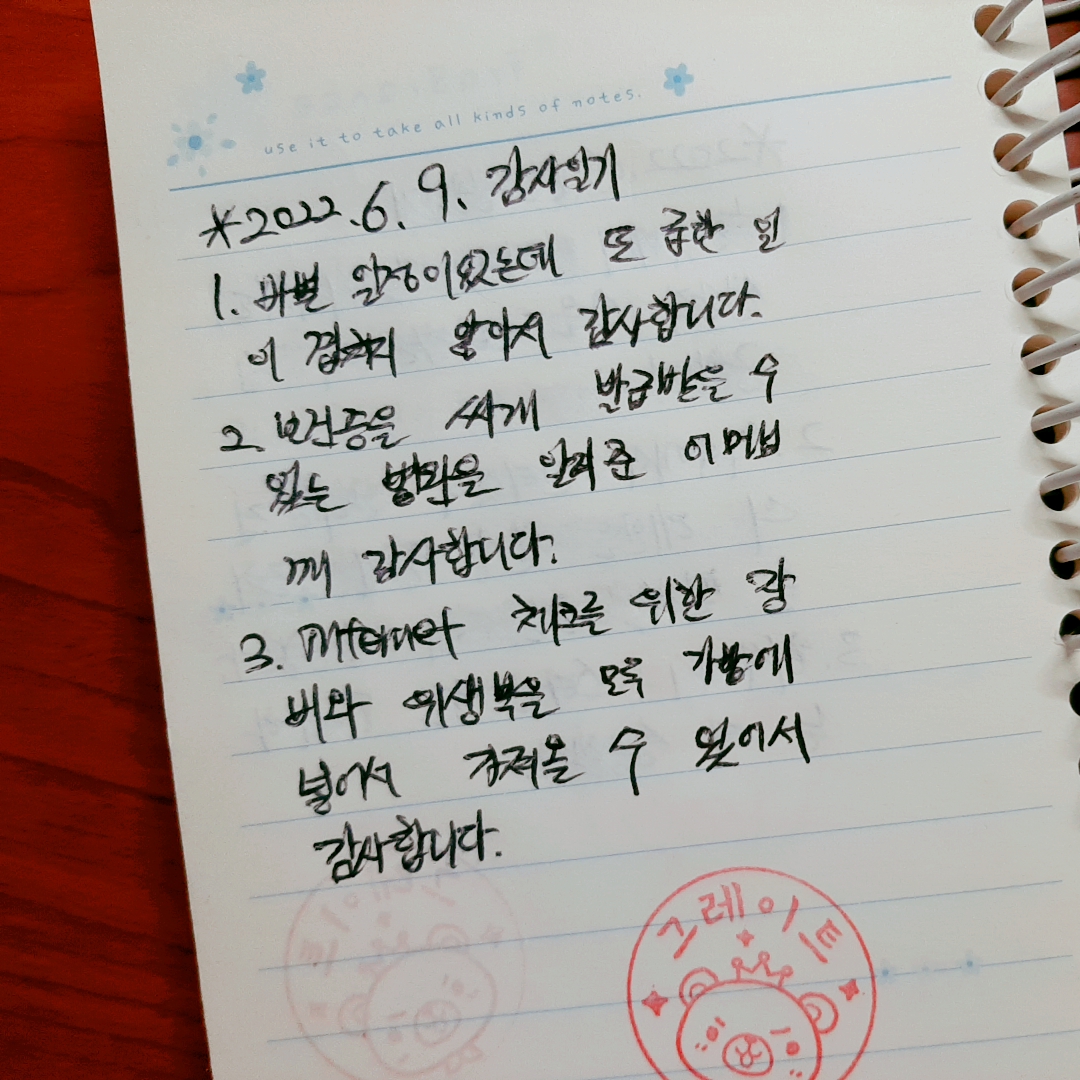 use it to take all kinds of notes.
*2022.6.9. 감사일기
1. 바쁜 일정이었는데 또 급한 일
이 겹치지 않아서 감사합니다.
2. 보건증을 싸게 발급받을 수
있는 방법을 알려준
께 감사합니다.
3. 체크를 위한 장
비와 위생복을 모두 가방에
넣어서 가져올 수 있어서
감사합니다.
그레이트